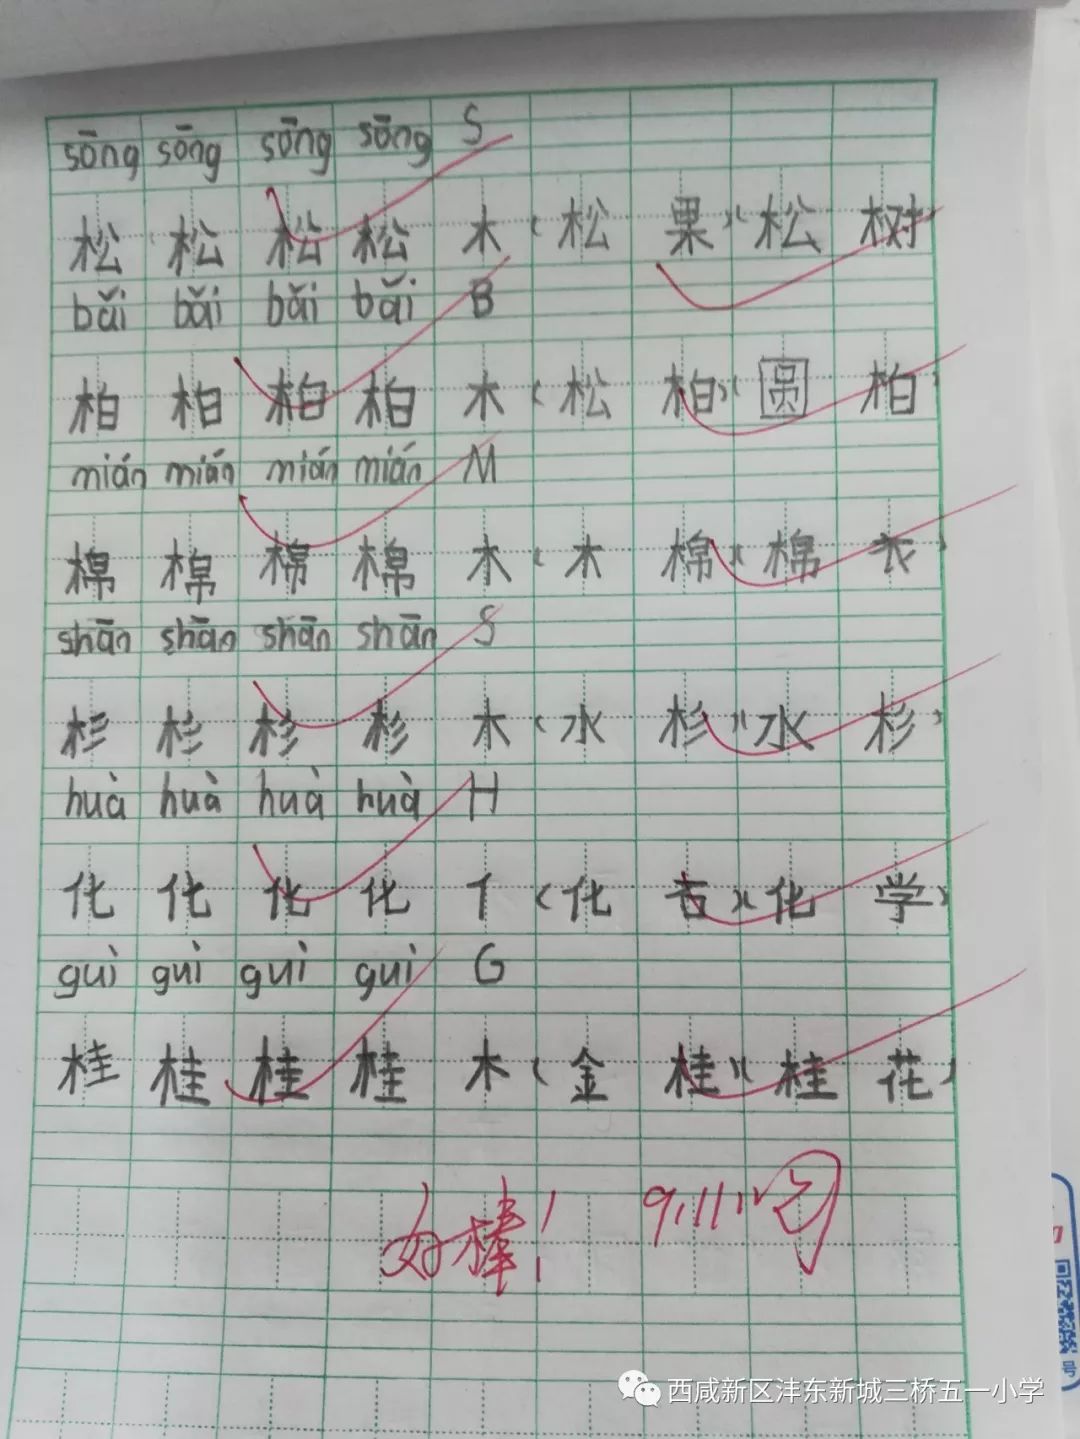 sōng sōng sōng sōng S
松 松 松 松 木 (松 果)(松 树)
bǎi bǎi bǎi bǎi B
柏 柏 柏 柏 木 (松 柏)(圆 柏)
mián mián mián mián M
棉 棉 棉 棉 木 (木 棉)(棉 衣)
shān shān shān shān S
杉 杉 杉 杉 木 (水 杉)(水 杉)
huà huà huà huà H
化 化 化 化 亻 (化 古)(化 学)
guì guì guì guì G
桂 桂 桂 桂 木 (金 桂)(桂 花)
好棒! 9.11
西咸新区沣东新城三桥五一小学
号